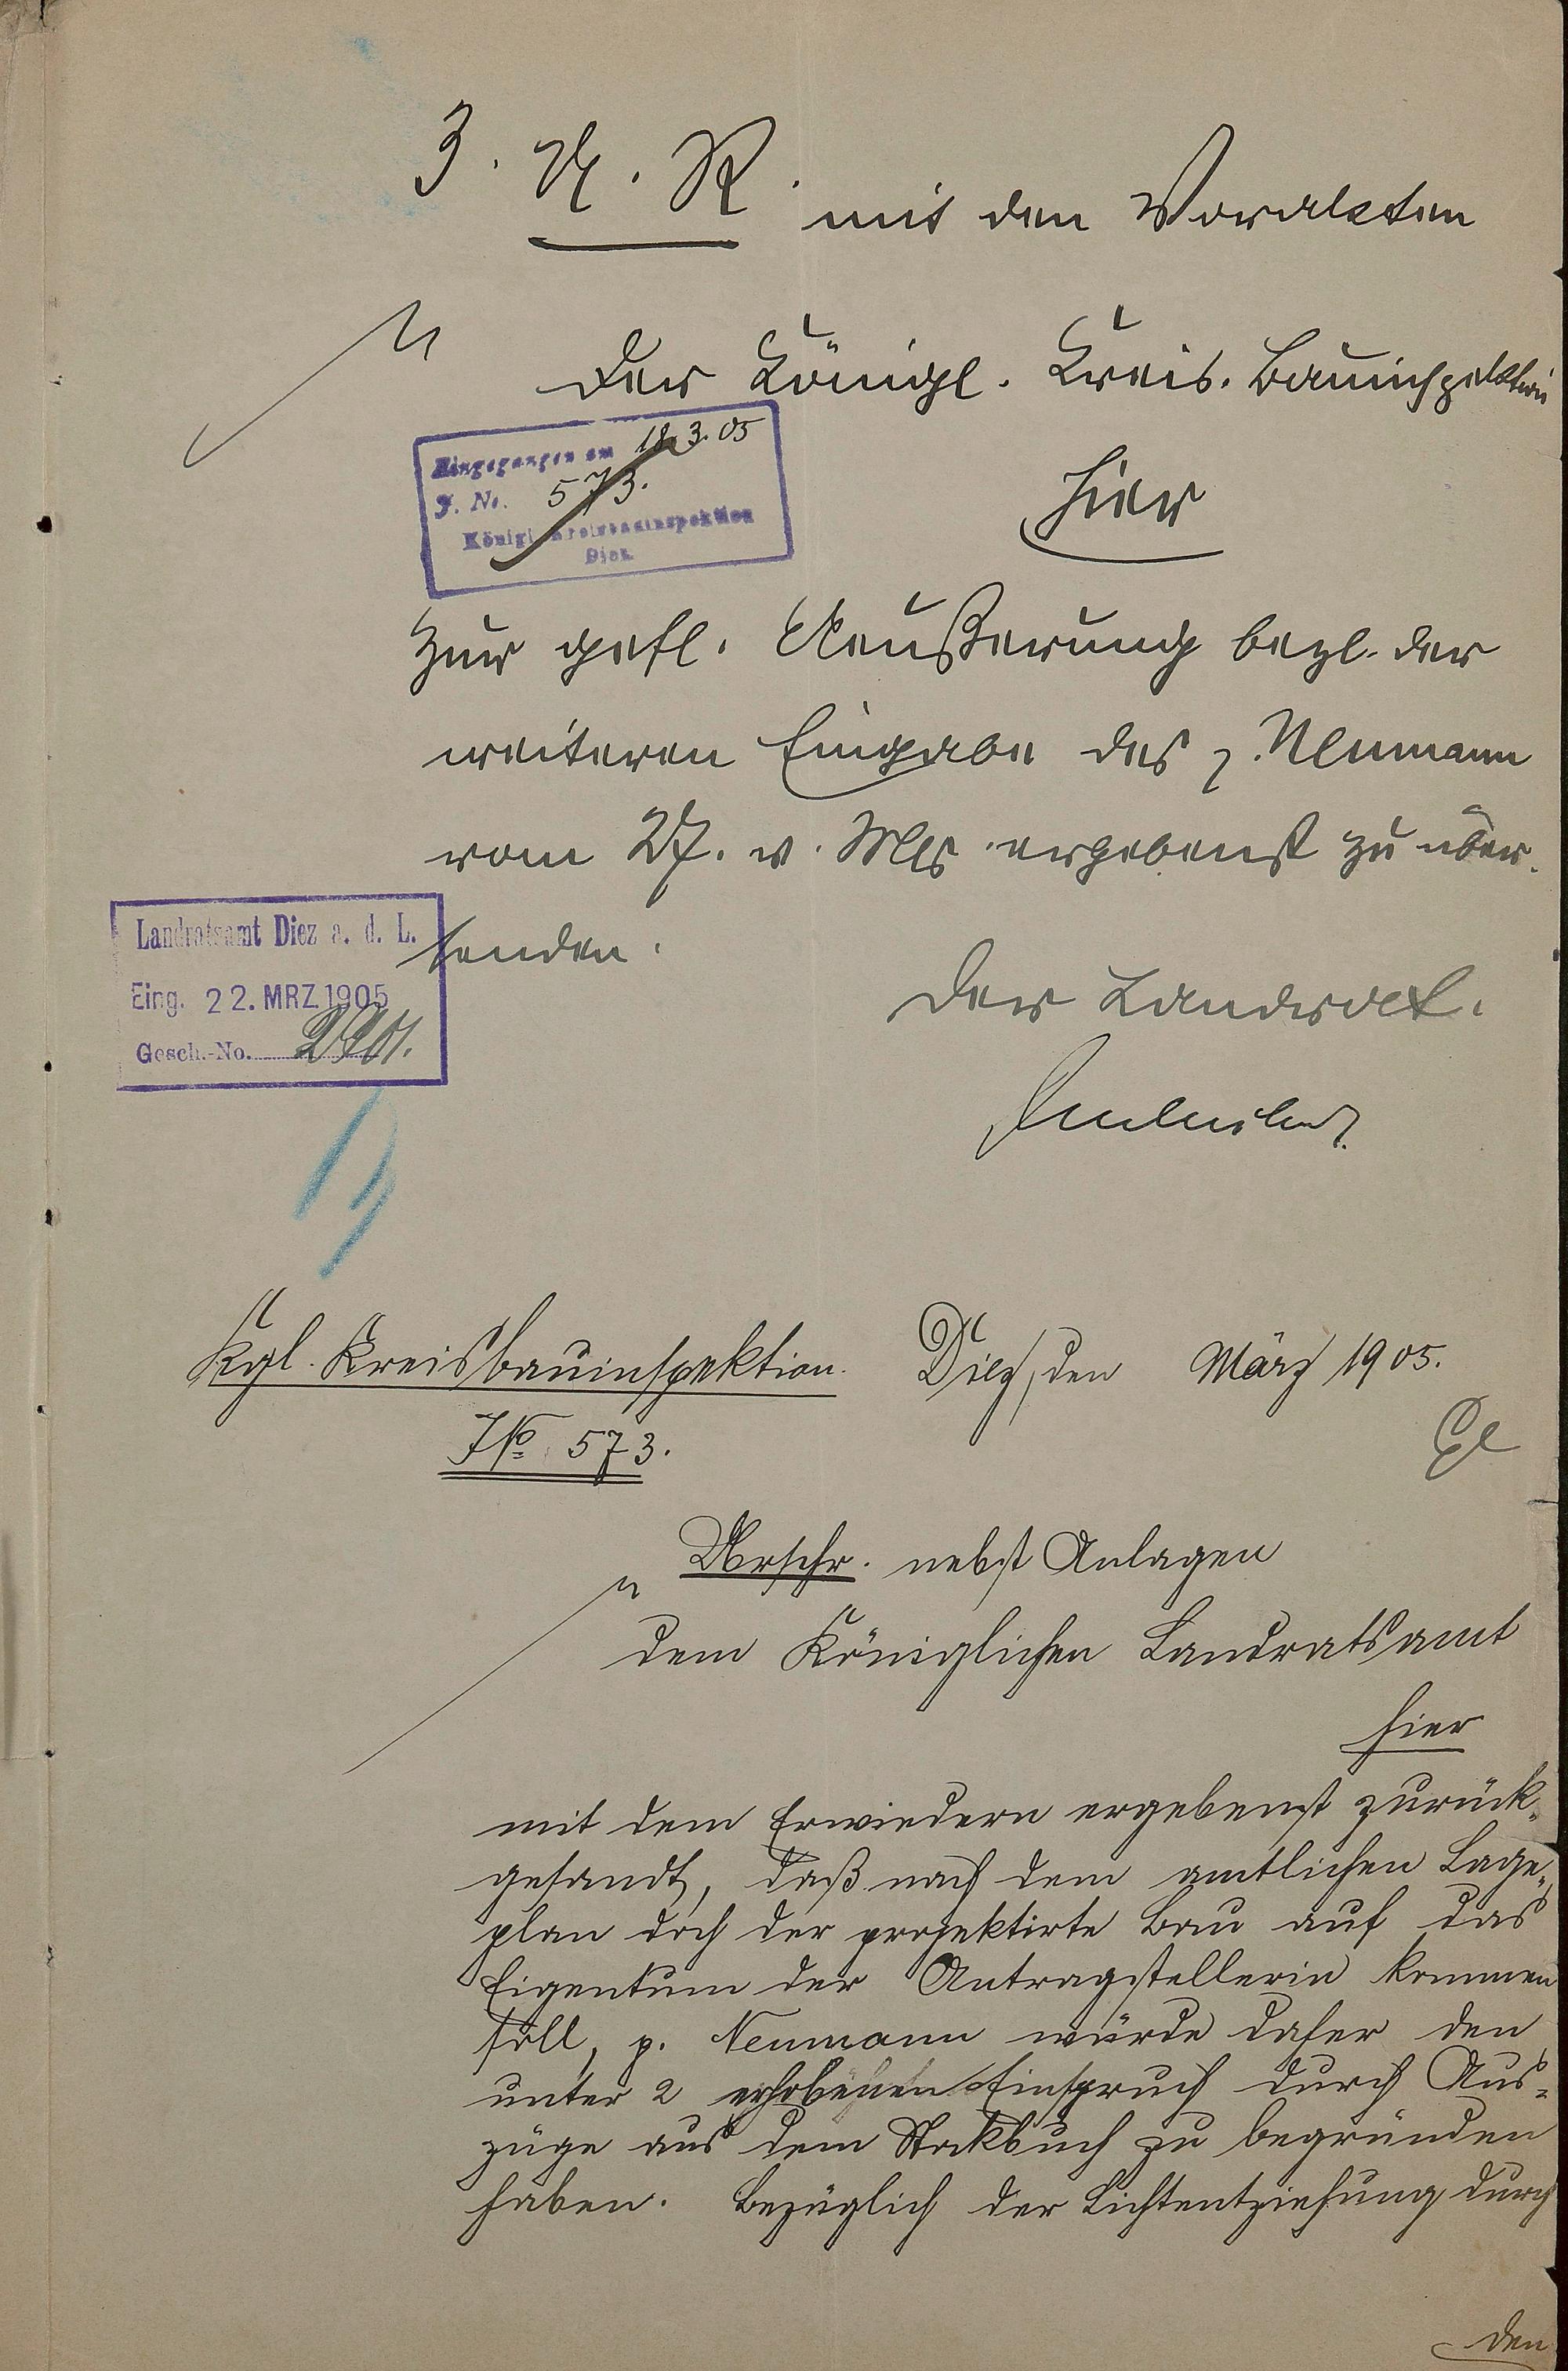 3. U. R. mit den Vorakten
der Königl. Kreis-Bauinspektion
hier
Eingegangen am 18.3.05
J. No. 573.
Königl. Kreisbauinspektion
Diez.
zur gefl. Aeußerung bezl. der
weiteren Eingabe des p. Neumann
vom 27. v. Mts ergebenst zu über-
senden.
Landratsamt Diez a. d. L.
Eing. 22. MRZ 1905
Gesch.-No.
Der Landrat.
Kgl. Kreisbauinspektion. Diez, den März 1905.
J№ 573.
Urschr. nebst Anlagen
dem Königlichen Landratsamt
hier
mit dem Erwiedern ergebenst zurück-
gesandt, daß nach dem amtlichen Lage-
plan doch der projektirte Bau auf das
Eigentum der Antragstellerin kommen
soll, p. Neumann würde daher den
unter 2 erhobenen Einspruch durch Aus-
züge aus dem Stokbuch zu begründen
haben. Bezüglich der Lichtentziehung durch
den